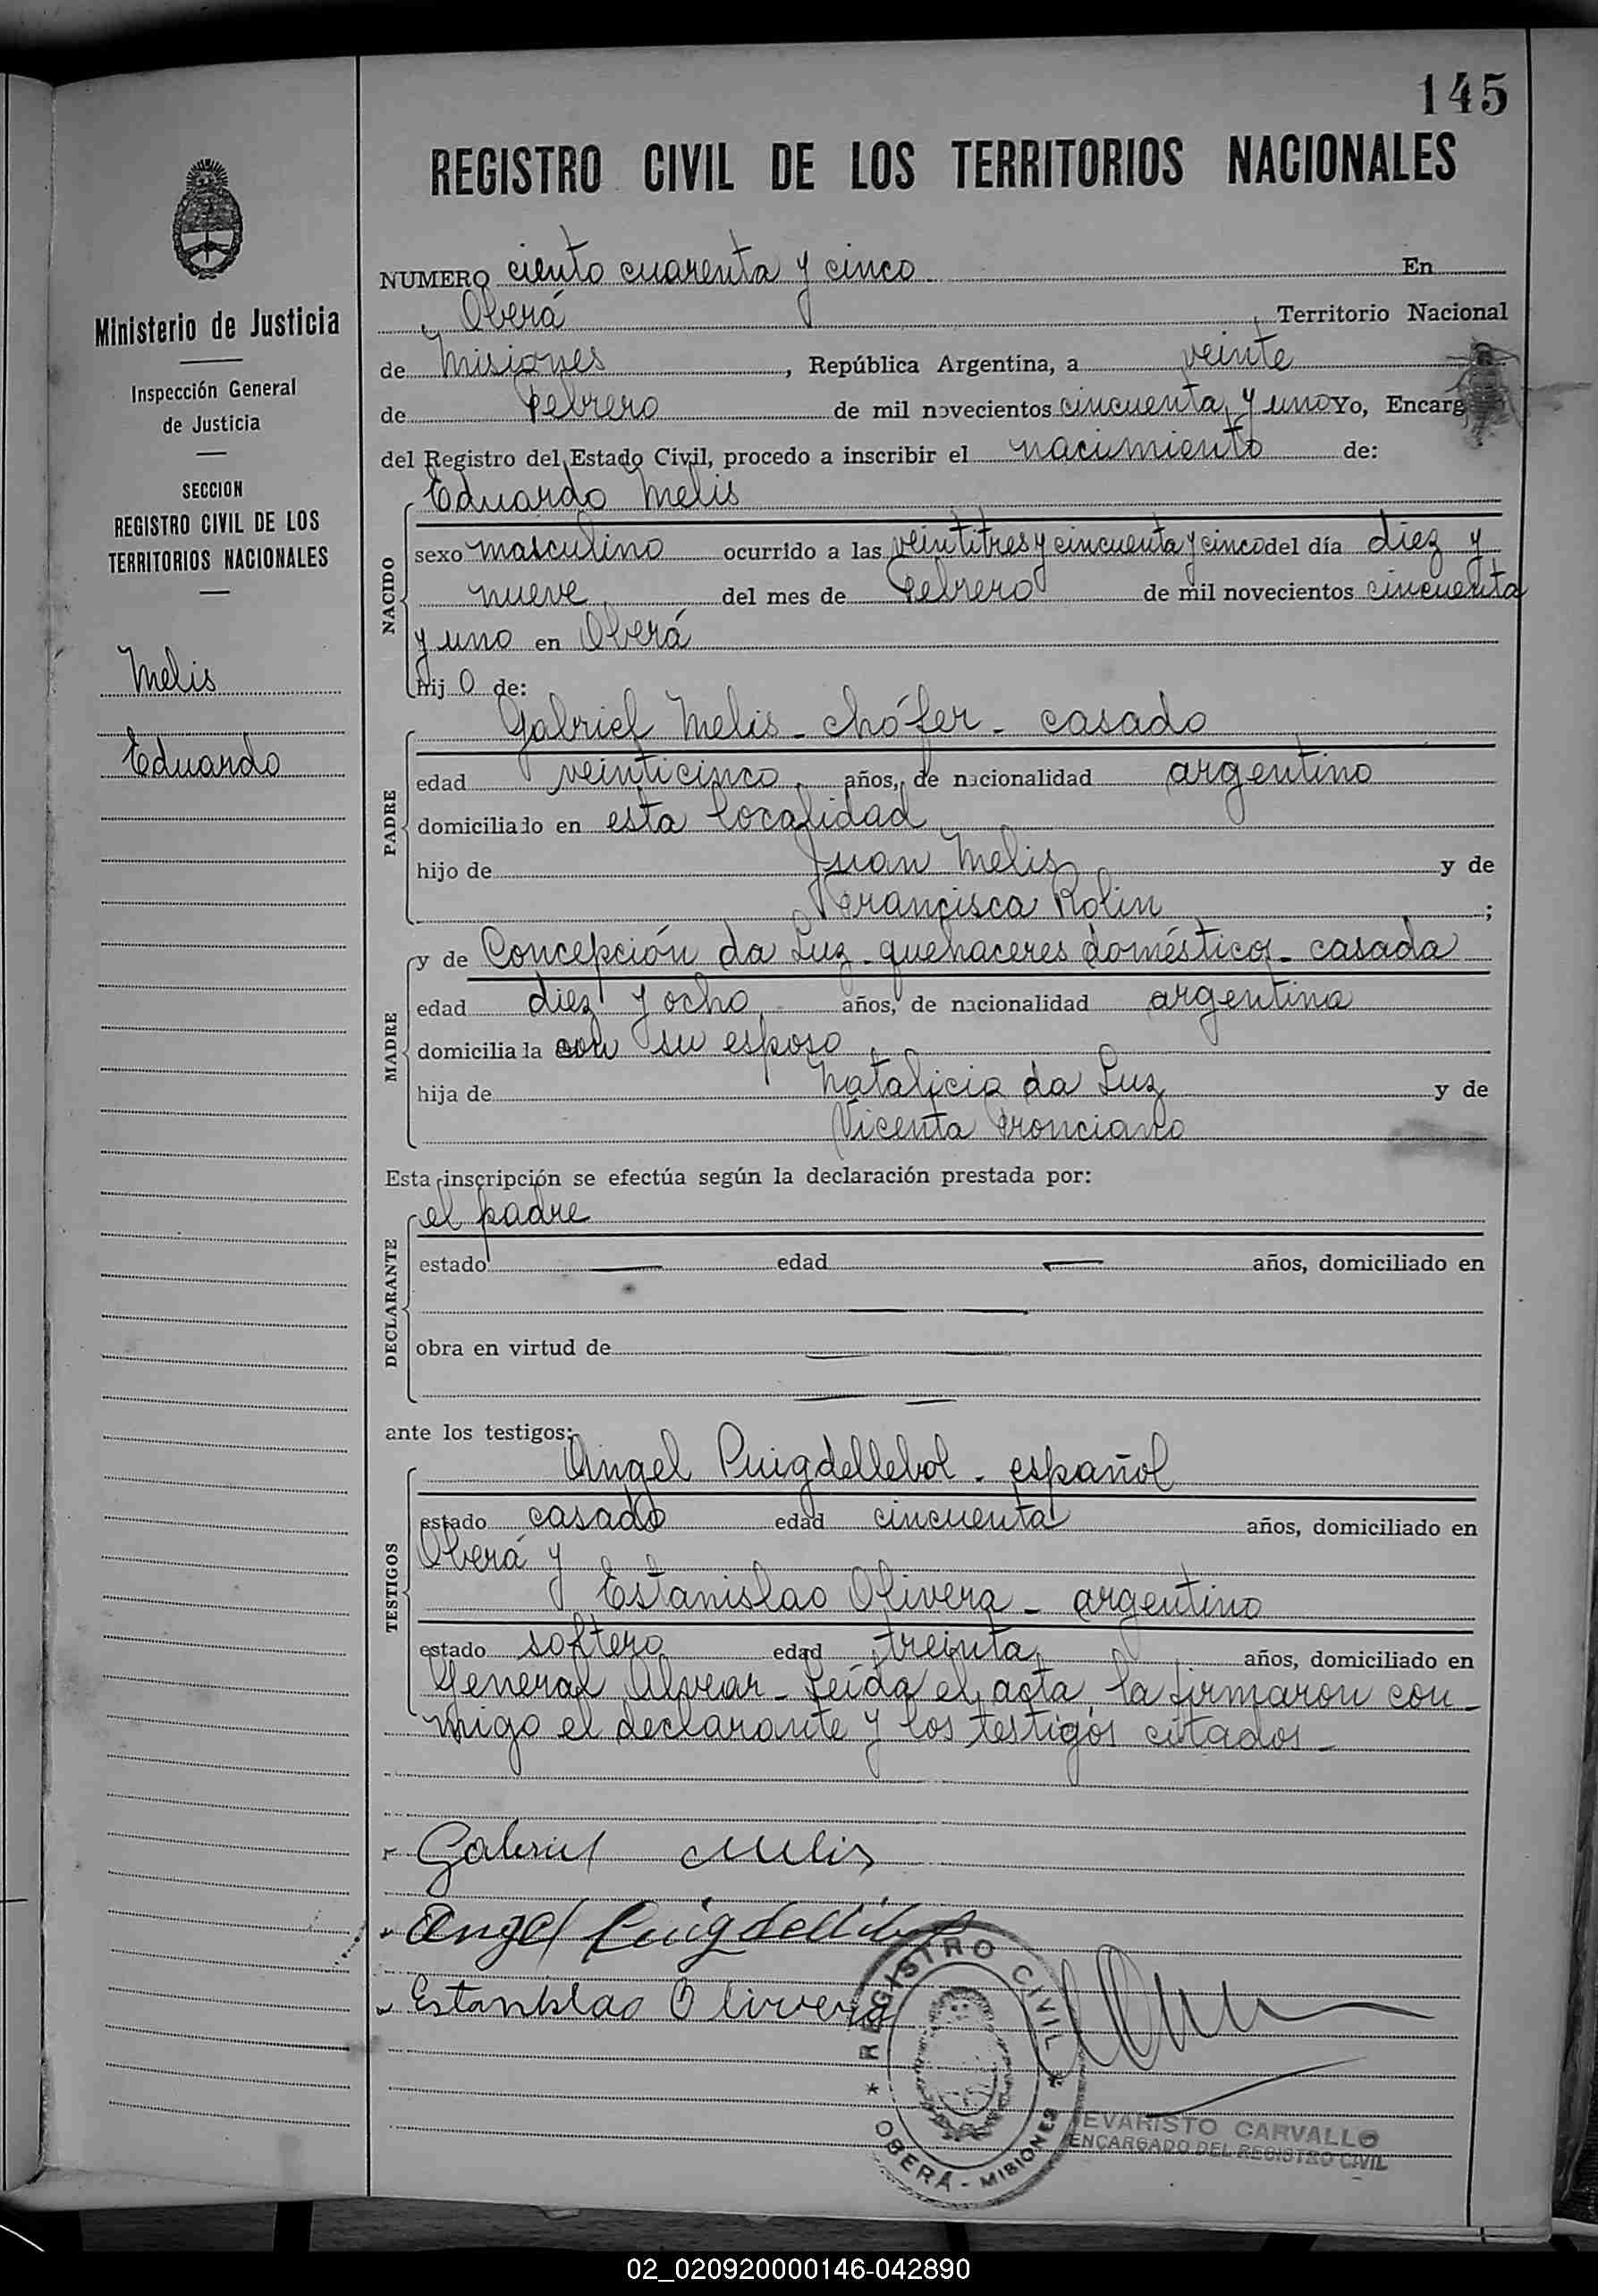 145
REGISTRO CIVIL DE LOS TERRITORIOS NACIONALES
Ministerio de Justicia
Inspección General
de Justicia
SECCION
REGISTRO CIVIL DE LOS
TERRITORIOS NACIONALES
Melis
Eduardo
NUMERO ciento cuarenta y cinco En
Oberá, Territorio Nacional
de Misiones, República Argentina, a veinte
de Febrero de mil novecientos cincuenta y uno Yo, Encarg
del Registro del Estado Civil, procedo a inscribir el nacimiento de:
Eduardo Melis
NACIDO
sexo masculino ocurrido a las veintitres y cincuenta y cinco del día diez y
nueve del mes de Febrero de mil novecientos cincuenta
y uno en Oberá
hij o de:
Gabriel Melis - chófer - casado
PADRE
edad veinticinco años, de nacionalidad argentino
domiciliado en esta localidad
hijo de Juan Melis y de
Francisca Rolin;
y de Concepción da Luz - quehaceres domésticos - casada
MADRE
edad diez y ocho años, de nacionalidad argentina
domicilia la con su esposo
hija de Natalicia da Luz y de
Vicenta Fronciano
Esta inscripción se efectúa según la declaración prestada por:
el padre
DECLARANTE
estado — edad — años, domiciliado en
— —
obra en virtud de — —
— —
ante los testigos:
Angel Puigdellebol - español
TESTIGOS
estado casado edad cincuenta años, domiciliado en
Oberá y
Estanislao Olivera - argentino
estado soltero edad treinta años, domiciliado en
General Alvear - Leída el acta la firmaron con-
migo el declarante y los testigos citados -
Gabriel Melis
Angel Puigdellibol
Estanislao Olivera
REGISTRO CIVIL
* OBERÁ - MISIONES *
EVARISTO CARVALLO
ENCARGADO DEL REGISTRO CIVIL
02_020920000146-042890